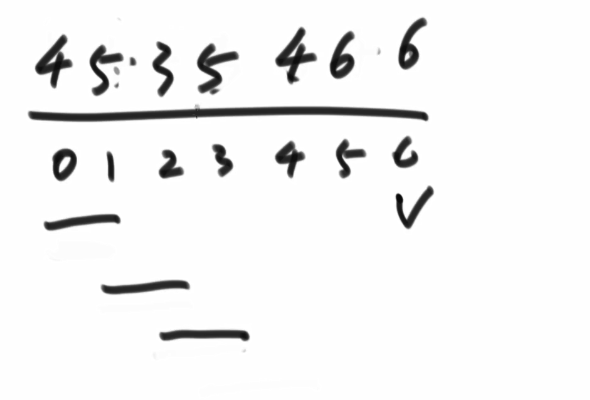 4 5 3 5 4 6 6
0 1 2 3 4 5 6